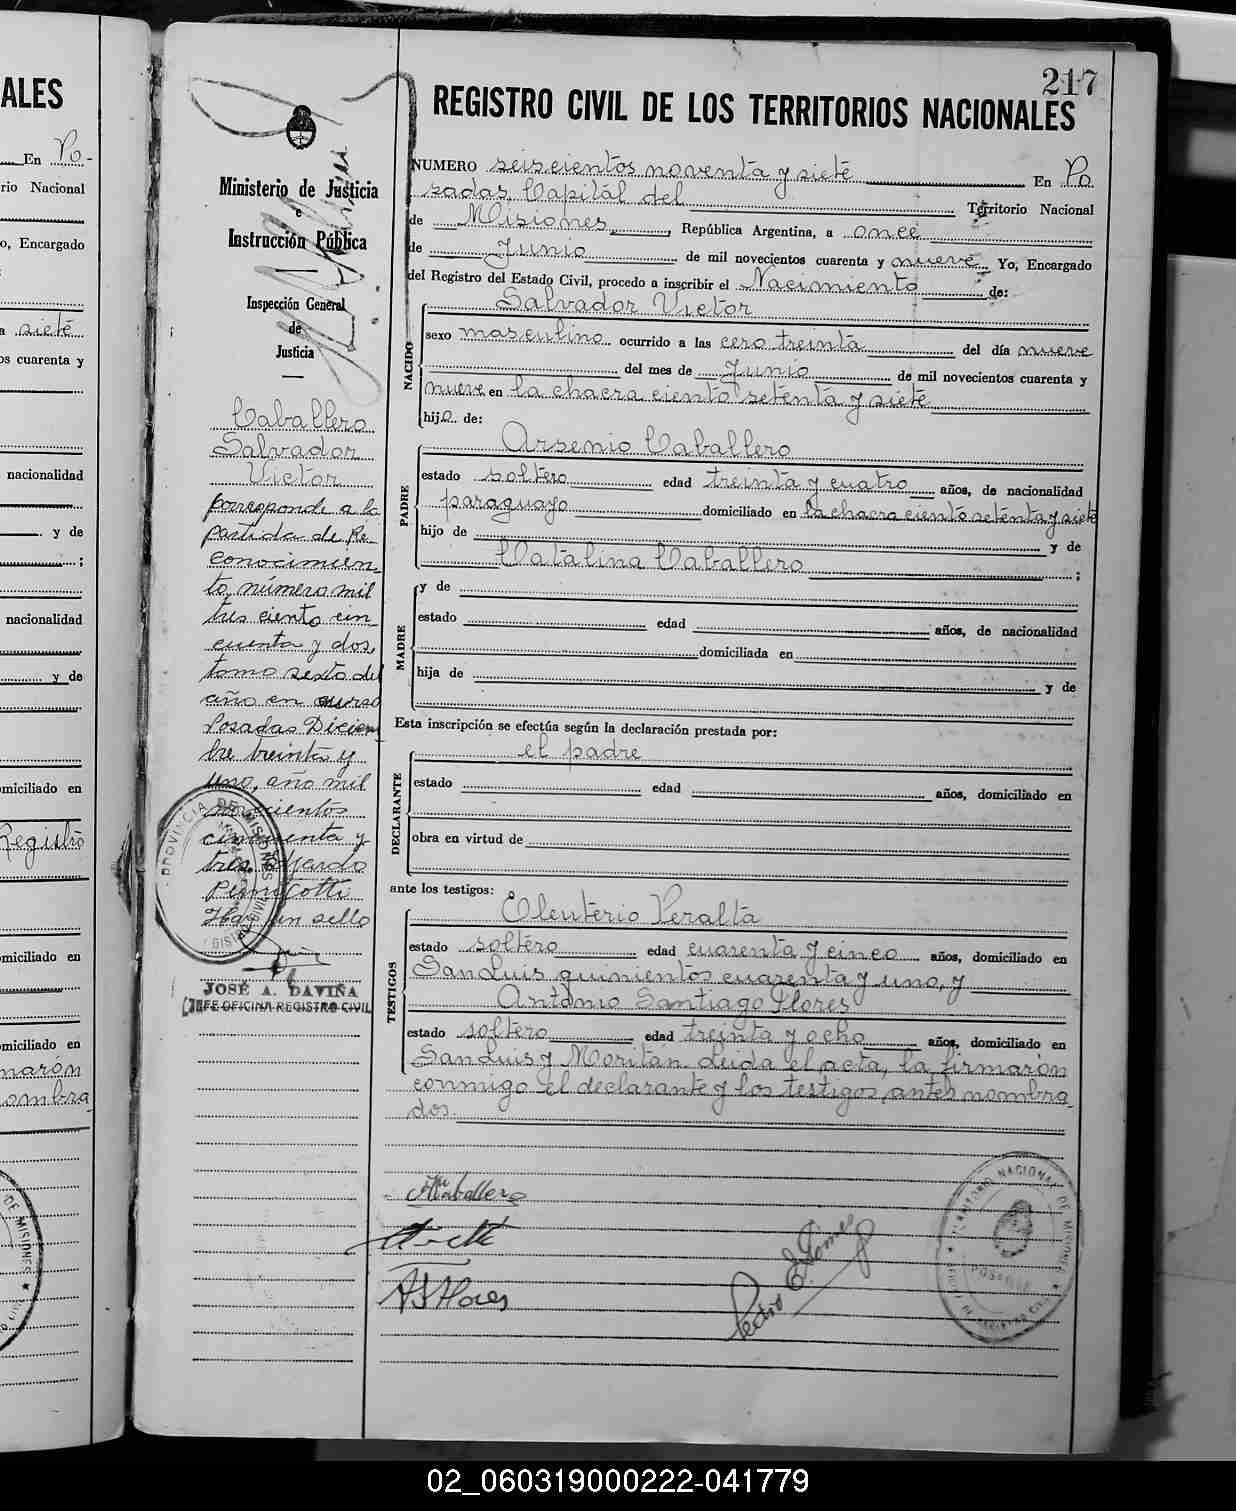 217
REGISTRO CIVIL DE LOS TERRITORIOS NACIONALES
NUMERO seiscientos noventa y siete En Po
sadas, Capital del Territorio Nacional
de Misiones, República Argentina, a once
de Junio de mil novecientos cuarenta y nueve Yo, Encargado
del Registro del Estado Civil, procedo a inscribir el Nacimiento de:
NACIDO
Salvador Victor
sexo masculino ocurrido a las cero treinta del día nueve
del mes de Junio de mil novecientos cuarenta y
nueve en la chacra ciento setenta y siete
hijo de:
PADRE
Arsenio Caballero
estado soltero edad treinta y cuatro años, de nacionalidad
paraguayo domiciliado en la chacra ciento setenta y siete
hijo de y de
Catalina Caballero ;
MADRE
y de
estado edad años, de nacionalidad
domiciliada en
hija de y de
Esta inscripción se efectúa según la declaración prestada por:
DECLARANTE
el padre
estado edad años, domiciliado en
obra en virtud de
ante los testigos:
TESTIGOS
Eleuterio Peralta
estado soltero edad cuarenta y cinco años, domiciliado en
San Luis quinientos cuarenta y uno, y
Antonio Santiago Flores
estado soltero edad treinta y ocho años, domiciliado en
San Luis y Moritán Leida el acta, la firmaron
conmigo el declarante y los testigos antes nombra
dos.
Caballero
Flores
Pedro
TERRITORIO NACIONAL DE MISIONES
POSADAS
Ministerio de Justicia
e
Instrucción Pública
Inspección General
de
Justicia
Caballero
Salvador
Victor
corresponde a la
partida de Re
conocimien
to número mil
tres ciento cin
cuenta y dos,
tomo sexto del
año en curso
Posadas Diciem
bre treinta y
uno, año mil
novecientos
cincuenta y
tres
Hay un sello
PROVINCIA DE MISIONES
JOSÉ A. DAVIÑA
JEFE OFICINA REGISTRO CIVIL
ALES
En Po-
rio Nacional
o, Encargado
a siete
os cuarenta y
nacionalidad
y de
;
nacionalidad
y de
miciliado en
Registro
miciliado en
miciliado en
maron
ombra
DE MISIONES
02_060319000222-041779